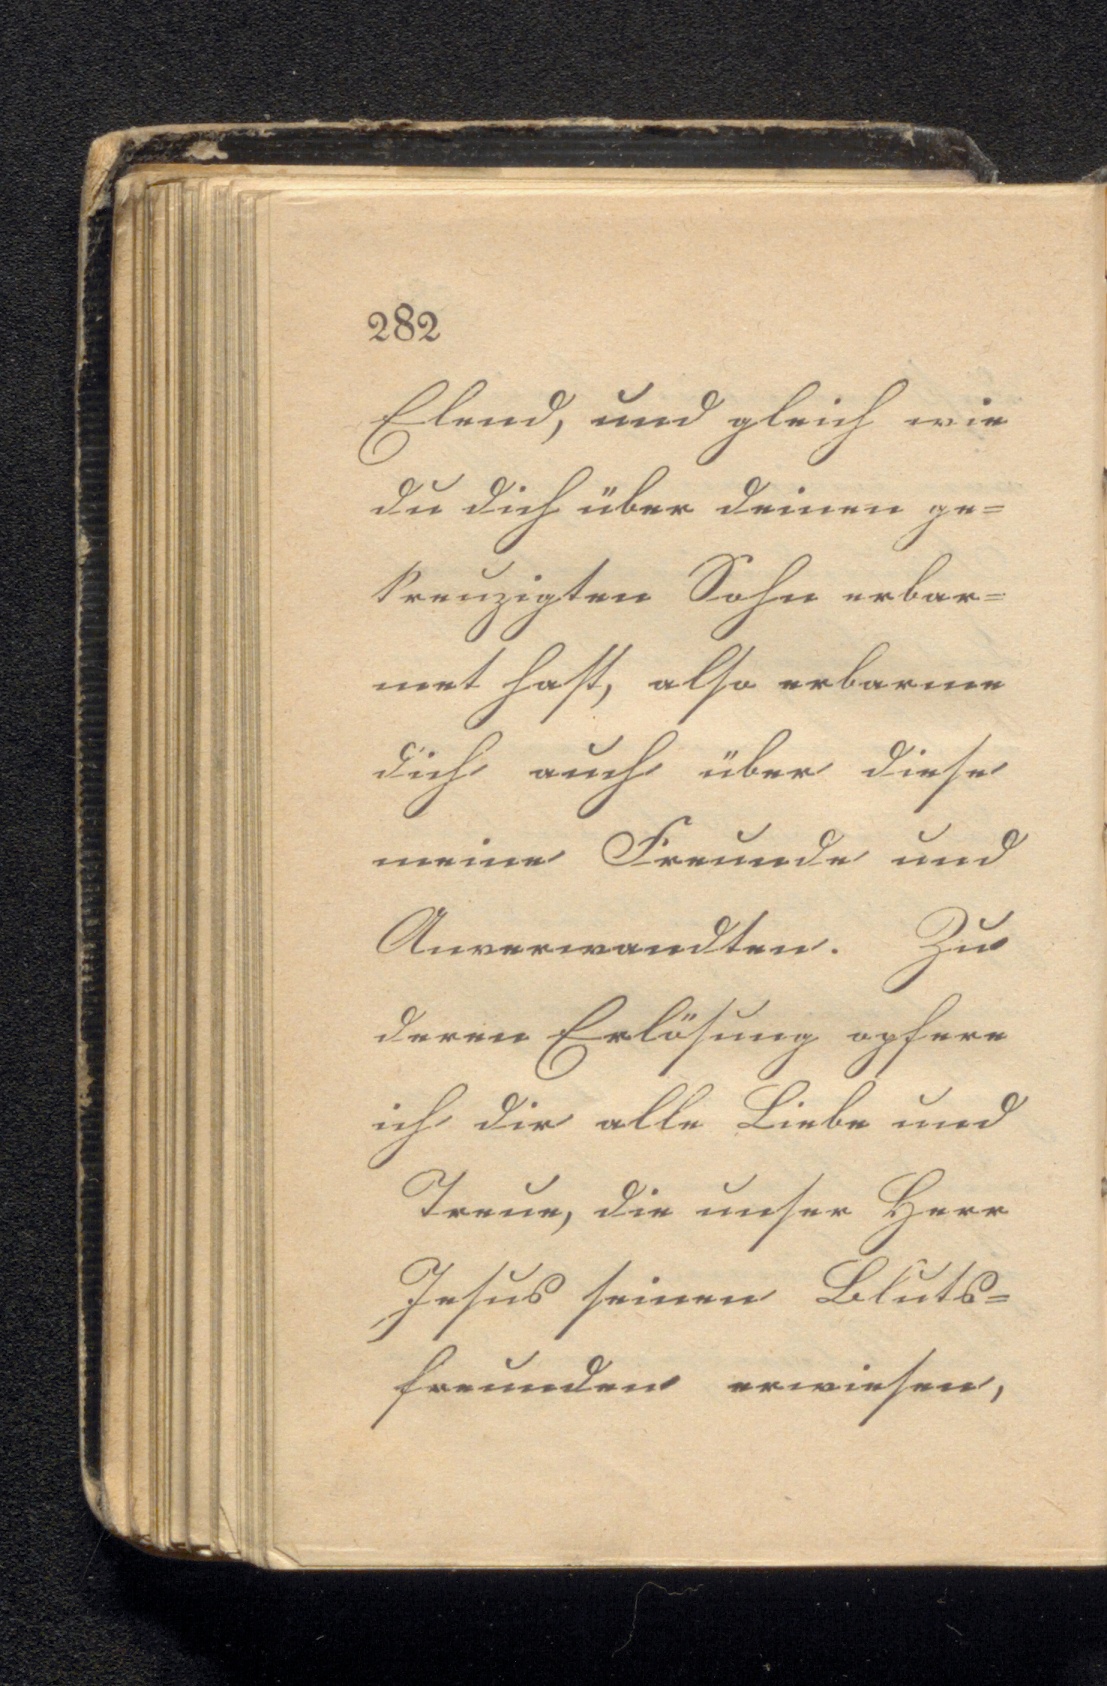 282
Elend, und gleich wie
du dich über deinen ge=
kreuzigten Sohn erbar=
met hast, also erbarme
dich auch über diese
meine Freunde und
Anverwandten. Zu
deren Erlösung opfere
ich dir alle Liebe und
Treue, die unser Herr
Jesus seinen Bluts=
freunden erwiesen,